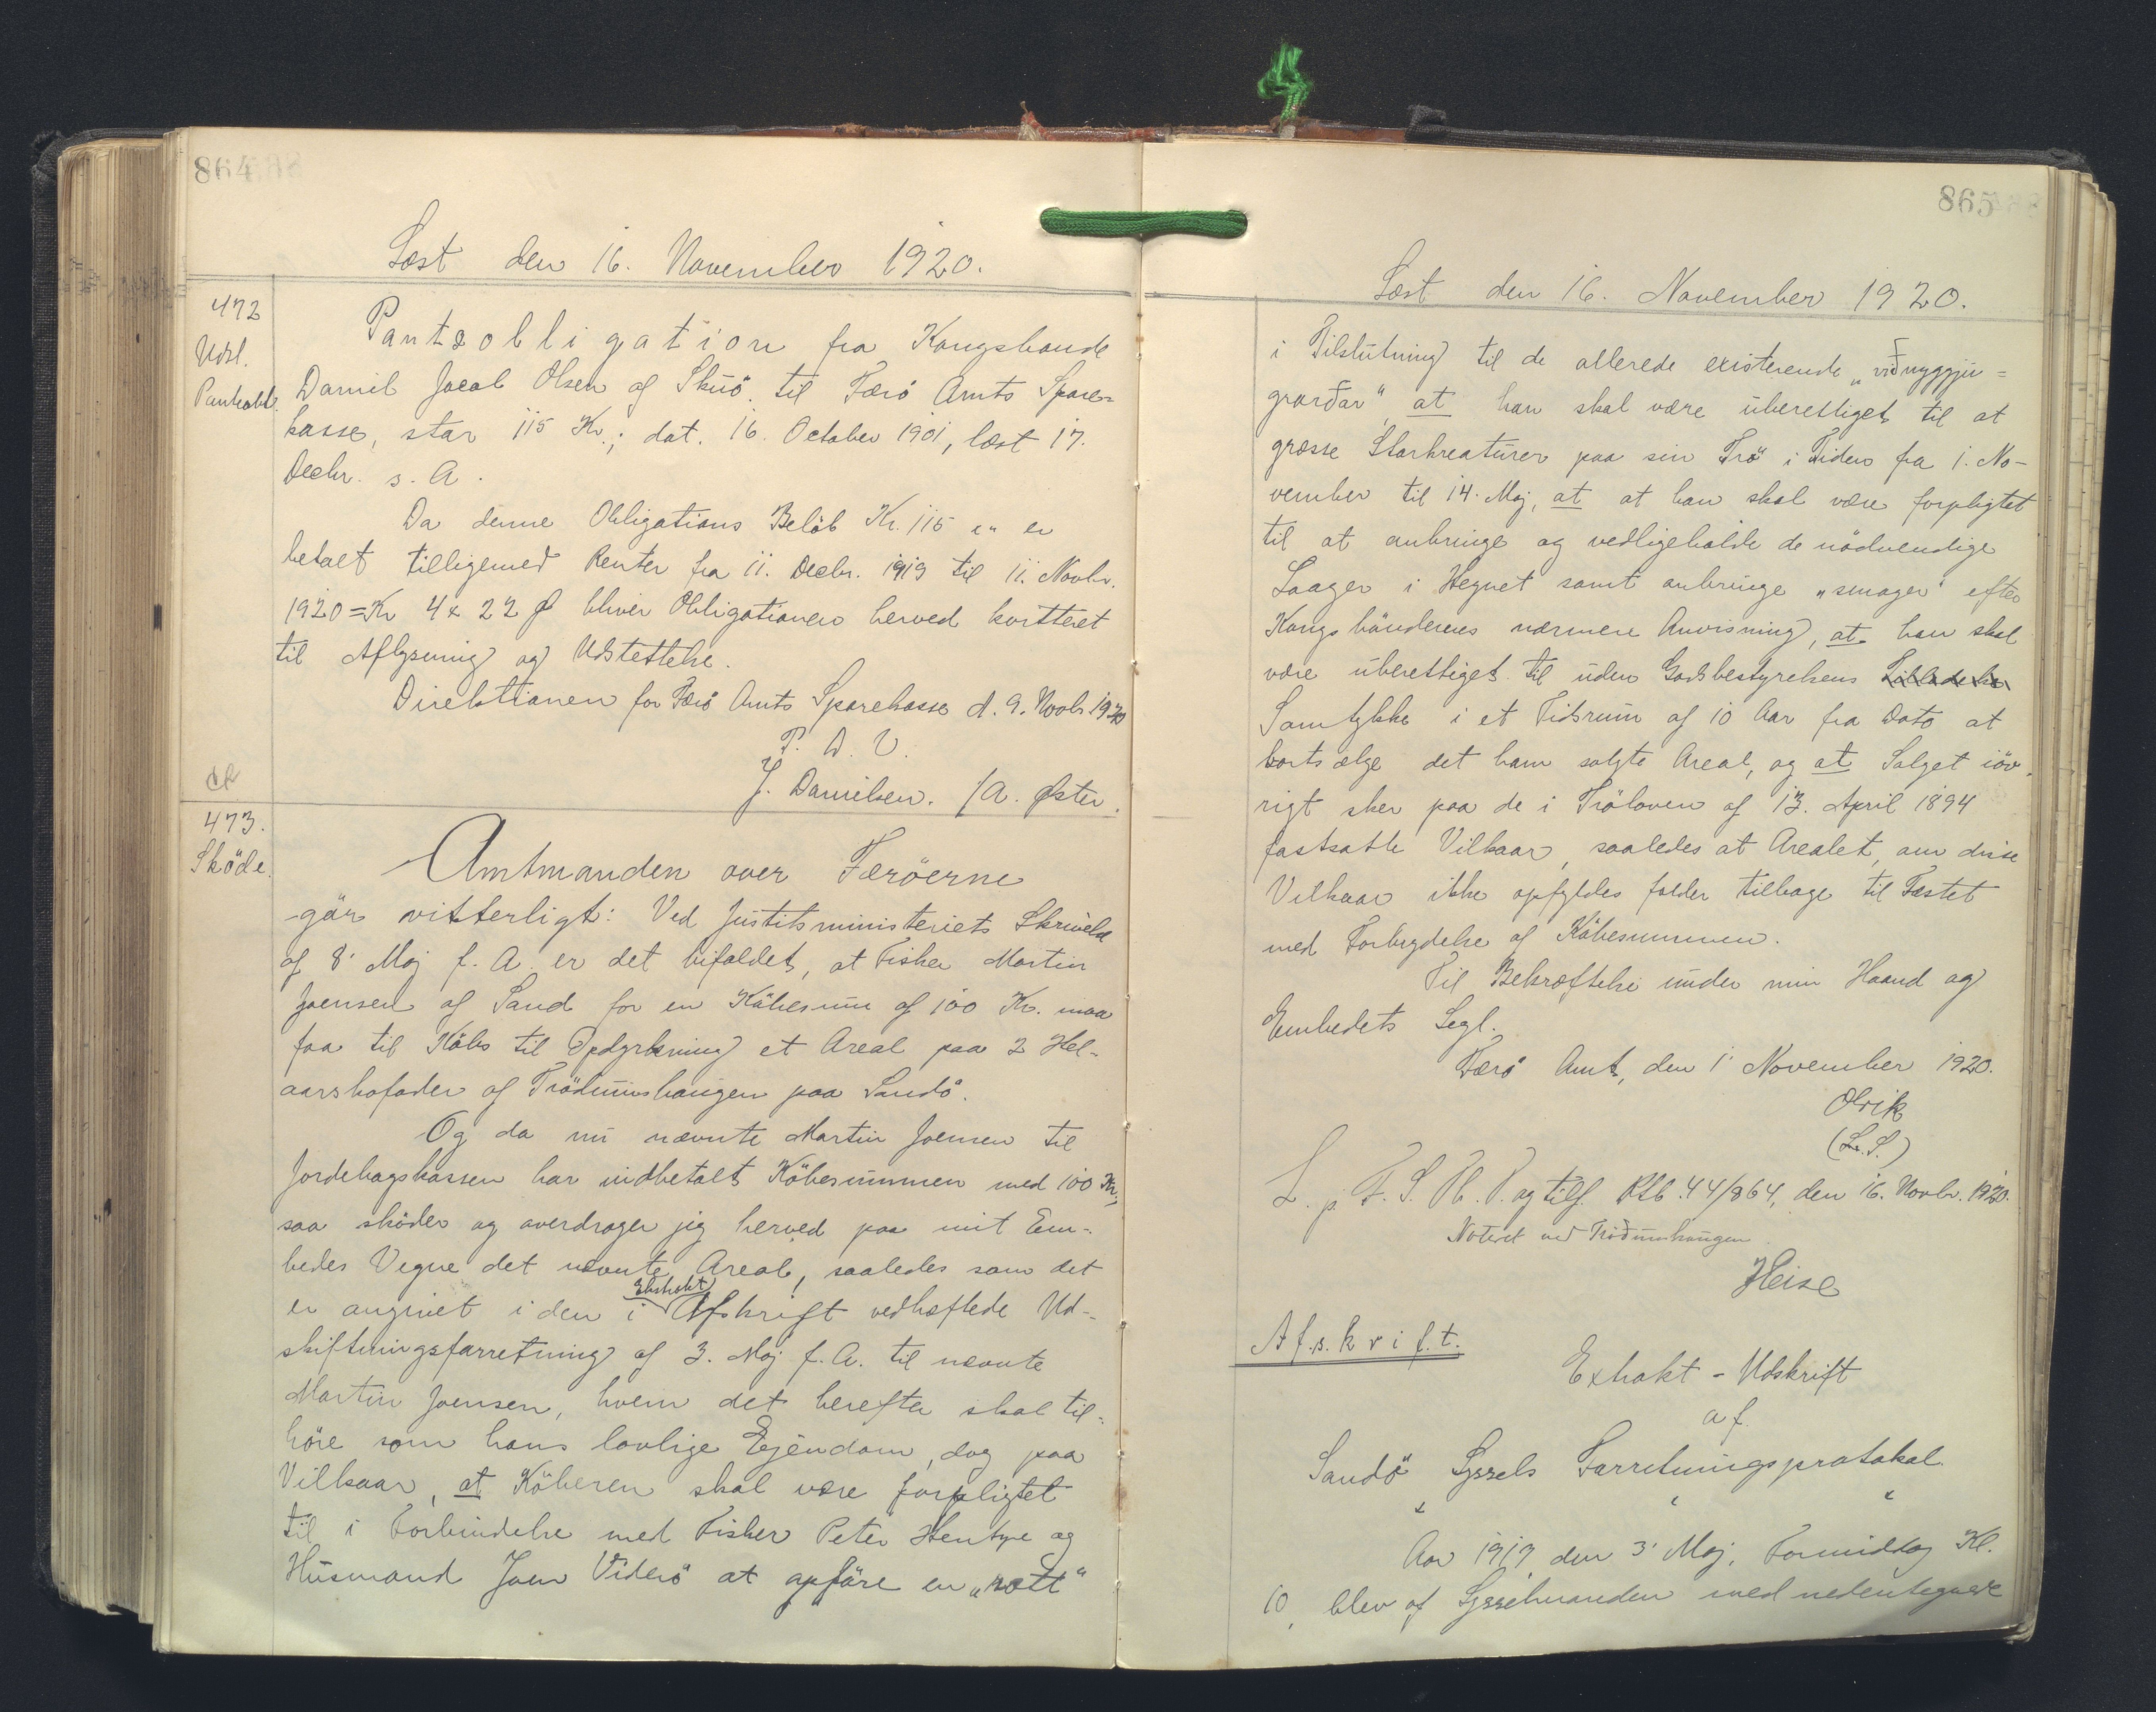 864
Læst den 16. November 1920.
472
Udsl.
Panteobl.
Pantsobligation fra Kongsbonde
Daniel Jacob Olsen af Skuö til Færö Amts Spare-
kasse, stor 115 Kr.; dat. 16. October 1901, læst 17.
Decbr. s. A.
Da denne Obligations Belöb Kr. 115 er
betalt tilligemed Renter fra 11. Decbr. 1919 til 11. Novbr.
1920 = Kr 4 22 Ø bliver Obligationen herved kvitteret
til Aflysning og Udslettelse.
Direktionen for Færö Amts Sparekasse d. 9. Novbr. 1920
P. D. V.
J. Danielsen. /A. Öster.
473.
Sköde.
Amtmanden over Færöerne
gör vitterligt: Ved Justitsministeriets Skrivelse
af 8' Maj f. A. er det bifaldet, at Fisker Martin
Joensen af Sand for en Köbesum af 100 Kr. maa
faa til Köbs til Opdyrkning et Areal paa 2 Hel-
aarshofoder af Trödumshaugen paa Sandö.
Og da nu nævnte Martin Joensen til
Jordebogskassen har indbetalt Köbesummen med 100 Kr.,
saa sköder og overdrager jeg herved paa mit Em-
bedes Vegne det nævnte Areal, saaledes som det
er angivet i den i Ekstrakt Afskrift vedhæftede Ud-
skiftningsforretning af 3. Maj f. A. til nævnte
Martin Joensen, hvem det herefter skal til-
höre som hans lovlige Ejendom, dog paa
Vilkaar, at Köberen skal være forpligtet
til i Forbindelse med Fisker Peter Hentze og
Husmand Joen Viderö at opföre en „rætt"
865
Læst den 16. November 1920.
i Tilslutning til de allerede existerende „viðnyggju=
gardar", at han skal være uberettiget til at
græsse Storkreaturer paa sin Trö i Tiden fra 1. No-
vember til 14. Maj, at at han skal være forpligtet
til at anbringe og vedligeholde de nödvendige
Laager i Hegnet samt anbringe „smoger" efter
Kongsböndernes nærmere Anvisning, at han skal
være uberettiget til uden Godsbestyrelsens
Samtykke i et Tidsrum af 10 Aar fra Dato at
bortsælge det ham solgte Areal, og at Salget iöv-
rigt sker paa de i Tröloven af 13. April 1894
fastsatte Vilkaar, saaledes at Arealet, om disse
Vilkaar ikke opfyldes falder tilbage til Fæstet
med Forbrydelse af Köbesummen.
Til Bekræftelse under min Haand og
Embedets Segl.
Færö Amt, den 1' November 1920.
Olrik
(L. S.)
L. p. F. S. Th. P. og tilf. Rtb. 44/864, den 16. Novbr. 1920.
Noteret ved Trödumhaugen
Heise
Afskrift.
Extrakt - Udskrift
af
Sandö Syssels Forretningsprotokol.
Aar 1919 den 3' Maj, Formiddag Kl.
10, blev af Sysselmanden med nedentegnede